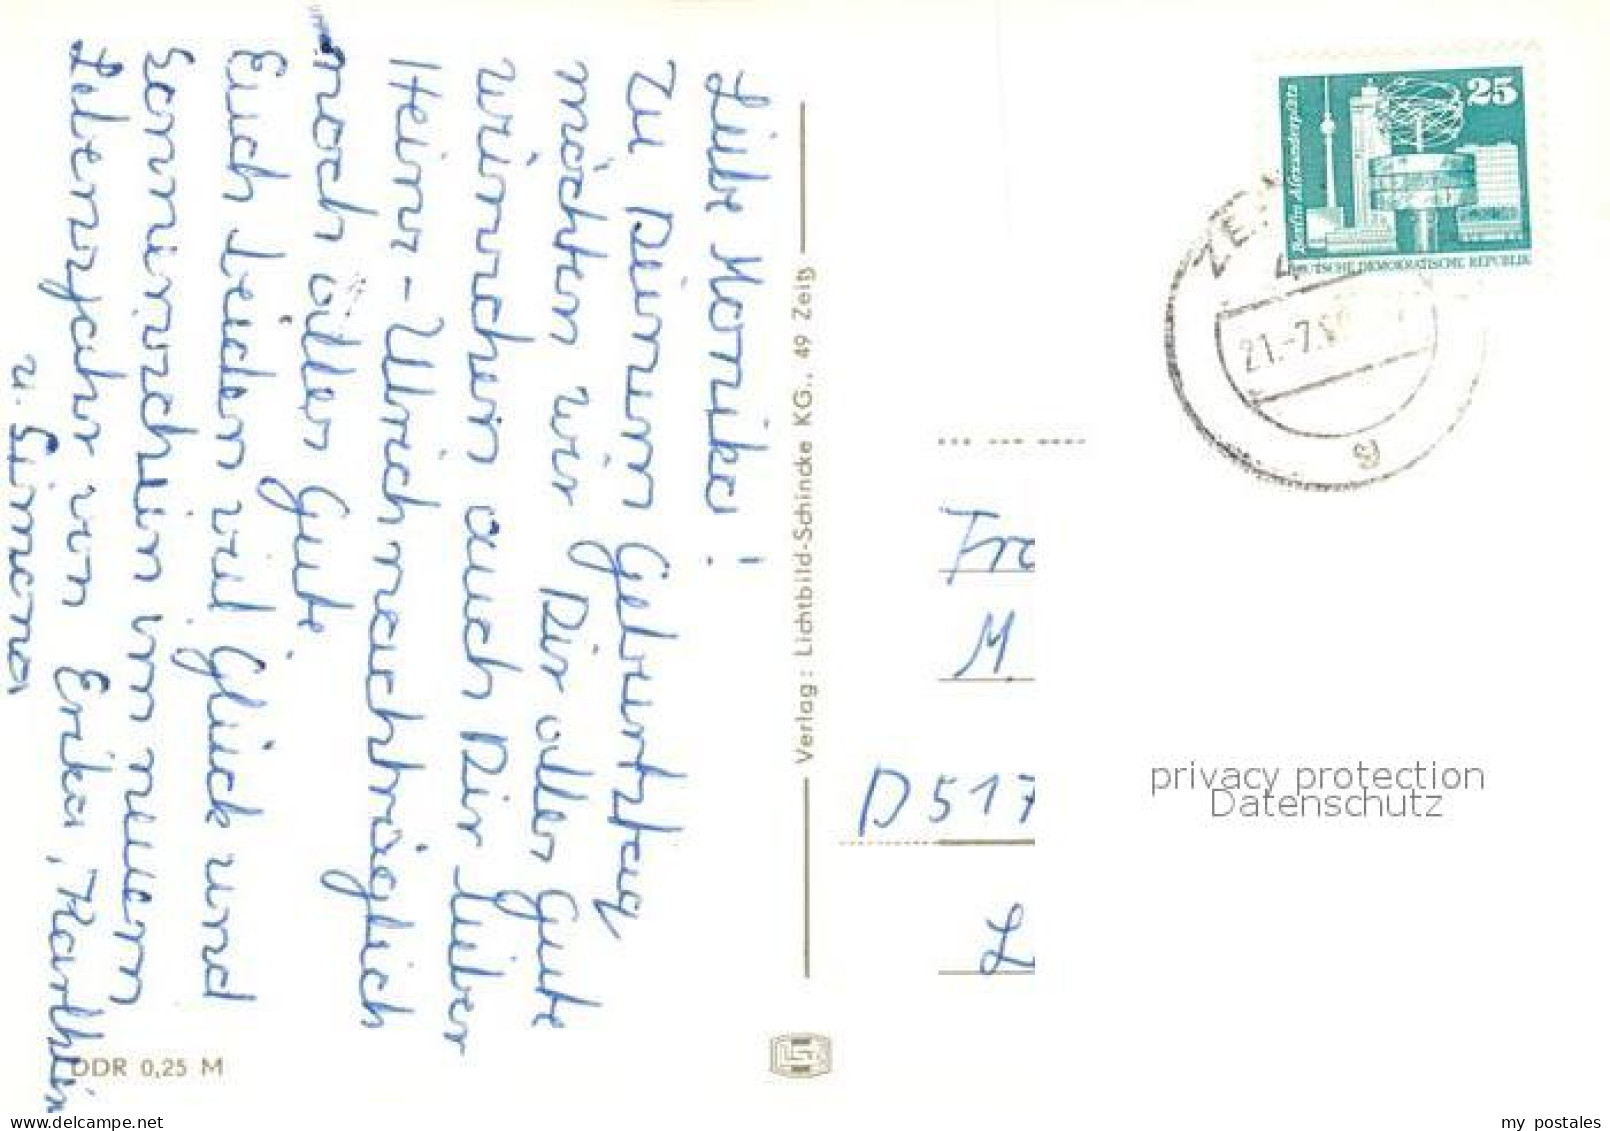 Liebe Monika!
Zu Deinem Geburtstag
möchten wir Dir alles Gute
wünschen auch Dir lieber
Heinz-Ulrich nachträglich
noch alles Gute
Euch beiden viel Glück und
Sonnenschein im neuen
Lebensjahr von Erika, Karlhein
u. Simona
DDR 0,25 M
Verlag: Lichtbild-Schincke KG., 49 Zeitz
25
Berlin Alexanderplatz
DEUTSCHE DEMOKRATISCHE REPUBLIK
ZE
21.-7.
g
Fra
M.
D 517
L
privacy protection
Datenschutz
delcampe.net
my postales